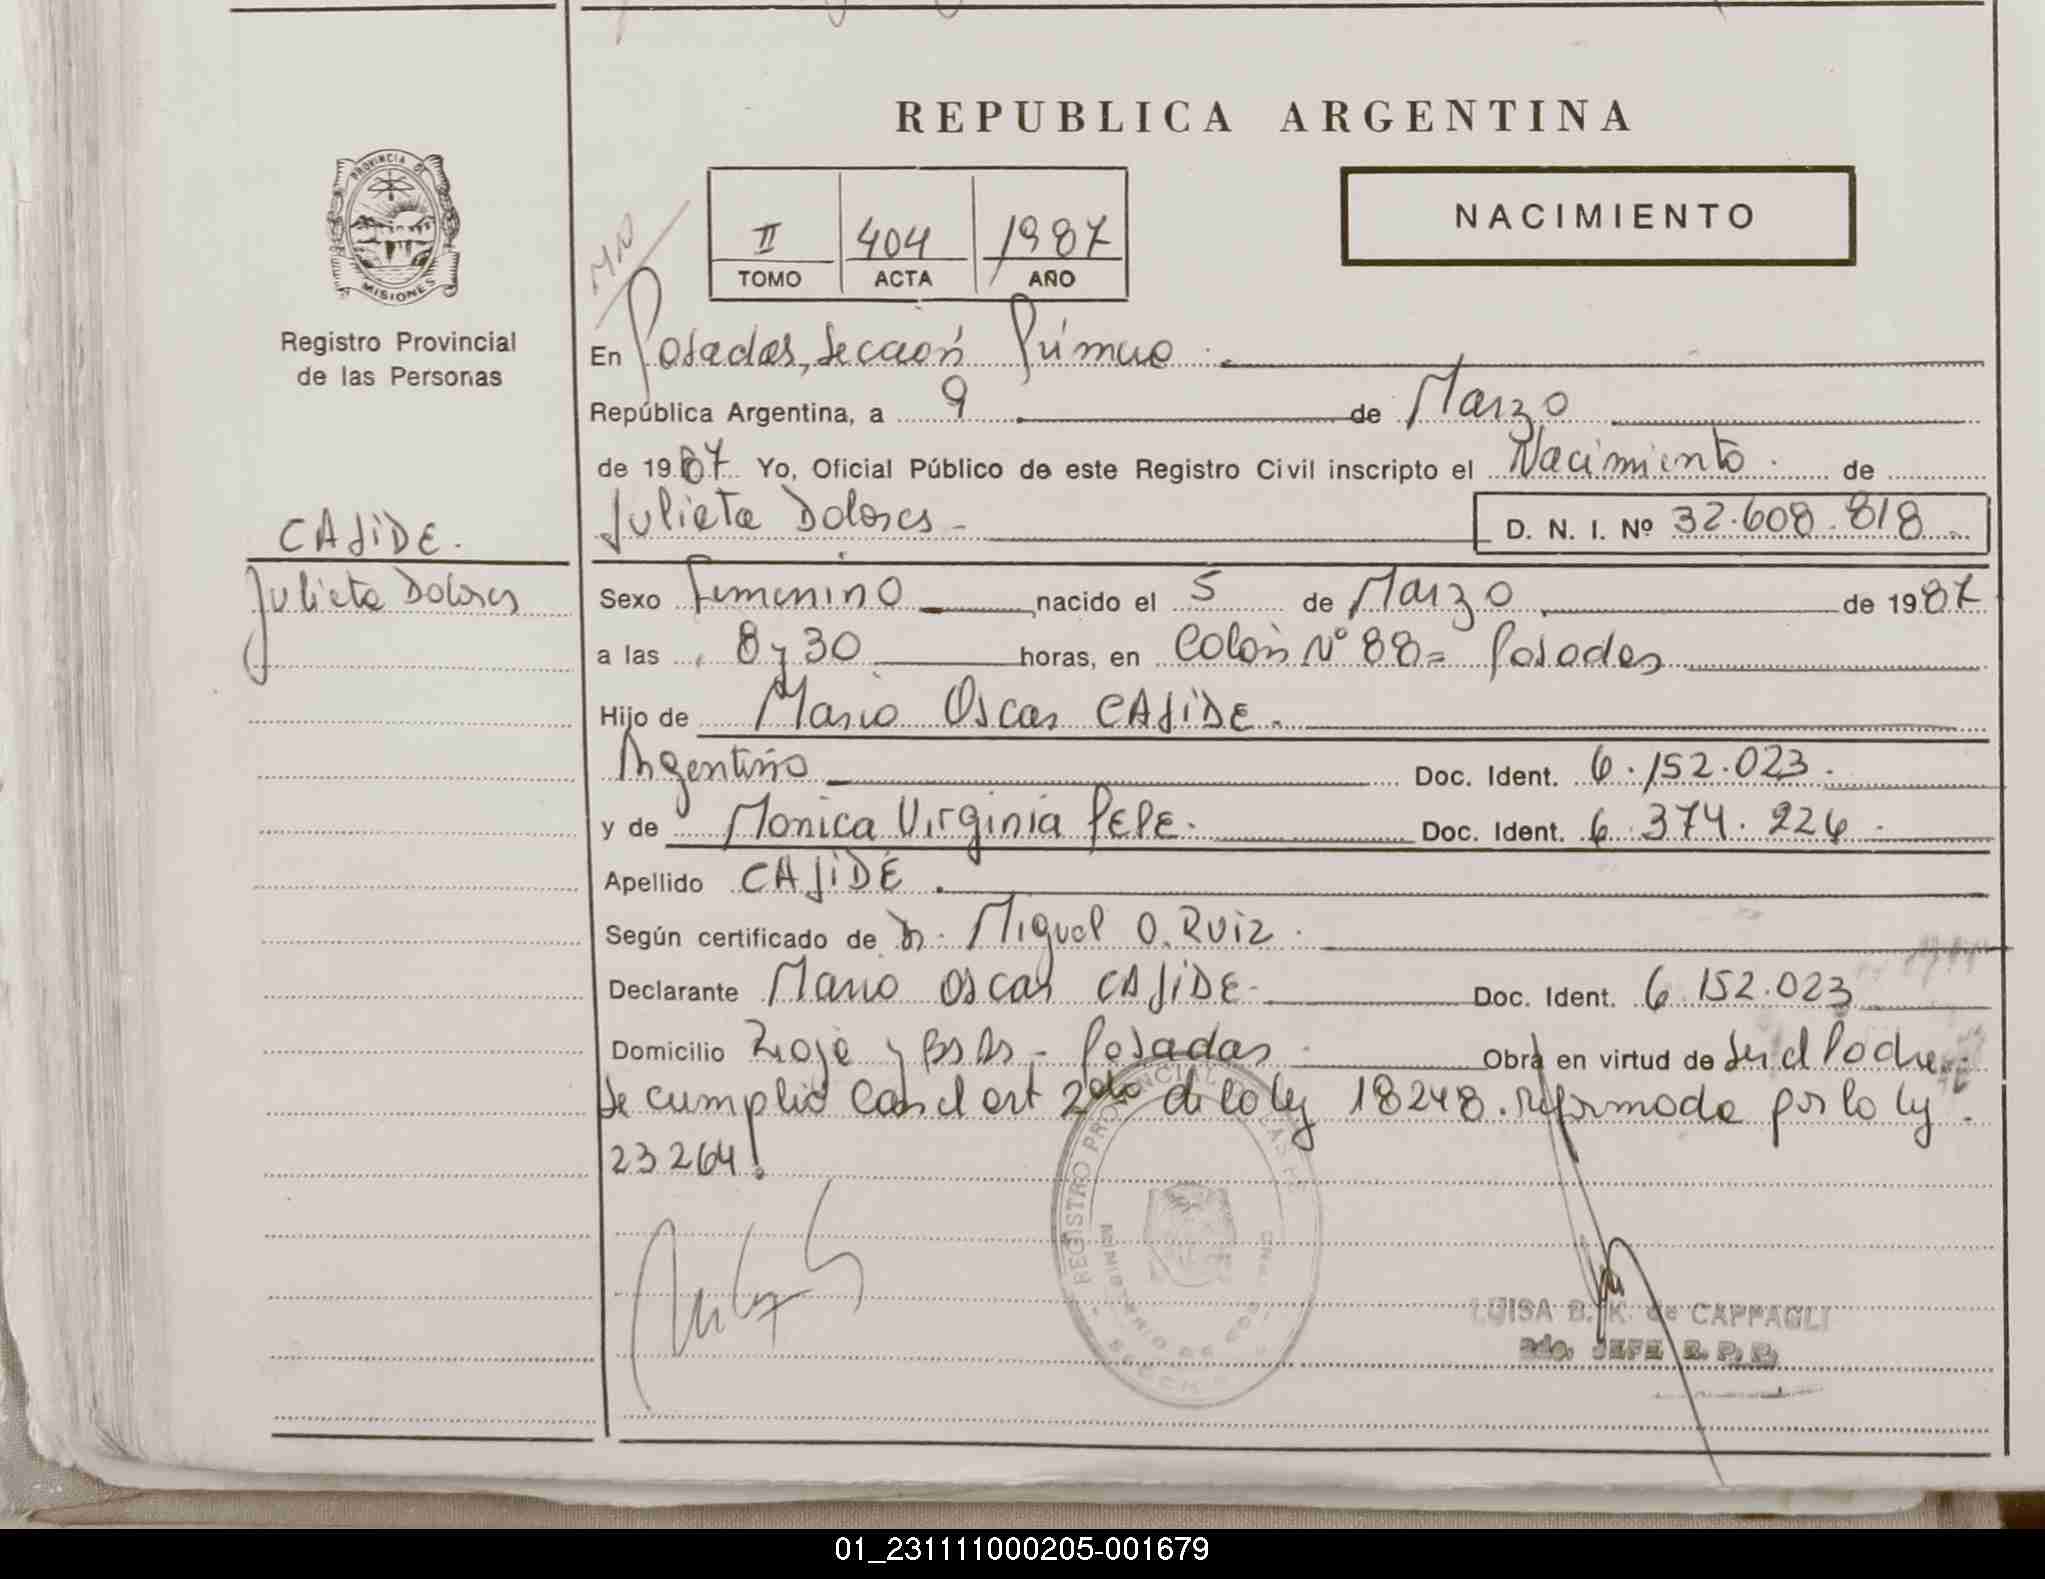 REPUBLICA ARGENTINA
PROVINCIA DE
MISIONES
Registro Provincial
de las Personas
NACIMIENTO
II 404 1987
TOMO ACTA AÑO
En Posadas, Sección Primera
República Argentina, a 9 de Marzo
de 1987 Yo, Oficial Público de este Registro Civil inscripto el Nacimiento de
Julieta Dolores D. N. I. Nº 32.608.818
CAJIDE.
Julieta Dolores
Sexo Femenino nacido el 5 de Marzo de 1987
a las 8 y 30 horas, en Colón Nº 88 = Posadas
Hijo de Mario Oscar CAJIDE.
Argentino Doc. Ident. 6.152.023.
y de Monica Virginia PEPE. Doc. Ident. 6.374.224.
Apellido CAJIDE.
Según certificado de Dr. Miguel O. Ruiz.
Declarante Mario Oscar CAJIDE- Doc. Ident. 6.152.023
Domicilio Rioja y Bs As - Posadas Obra en virtud de Ser el Padre.
Se cumplió con el art 2do de la ley 18248. reformada por la ley.
23264.
REGISTRO PROVINCIAL DE LAS
MINISTERIO DE GOB
LUISA B. K. de CAPPAGLI
2do. JEFE R. P. P.
01_231111000205-001679